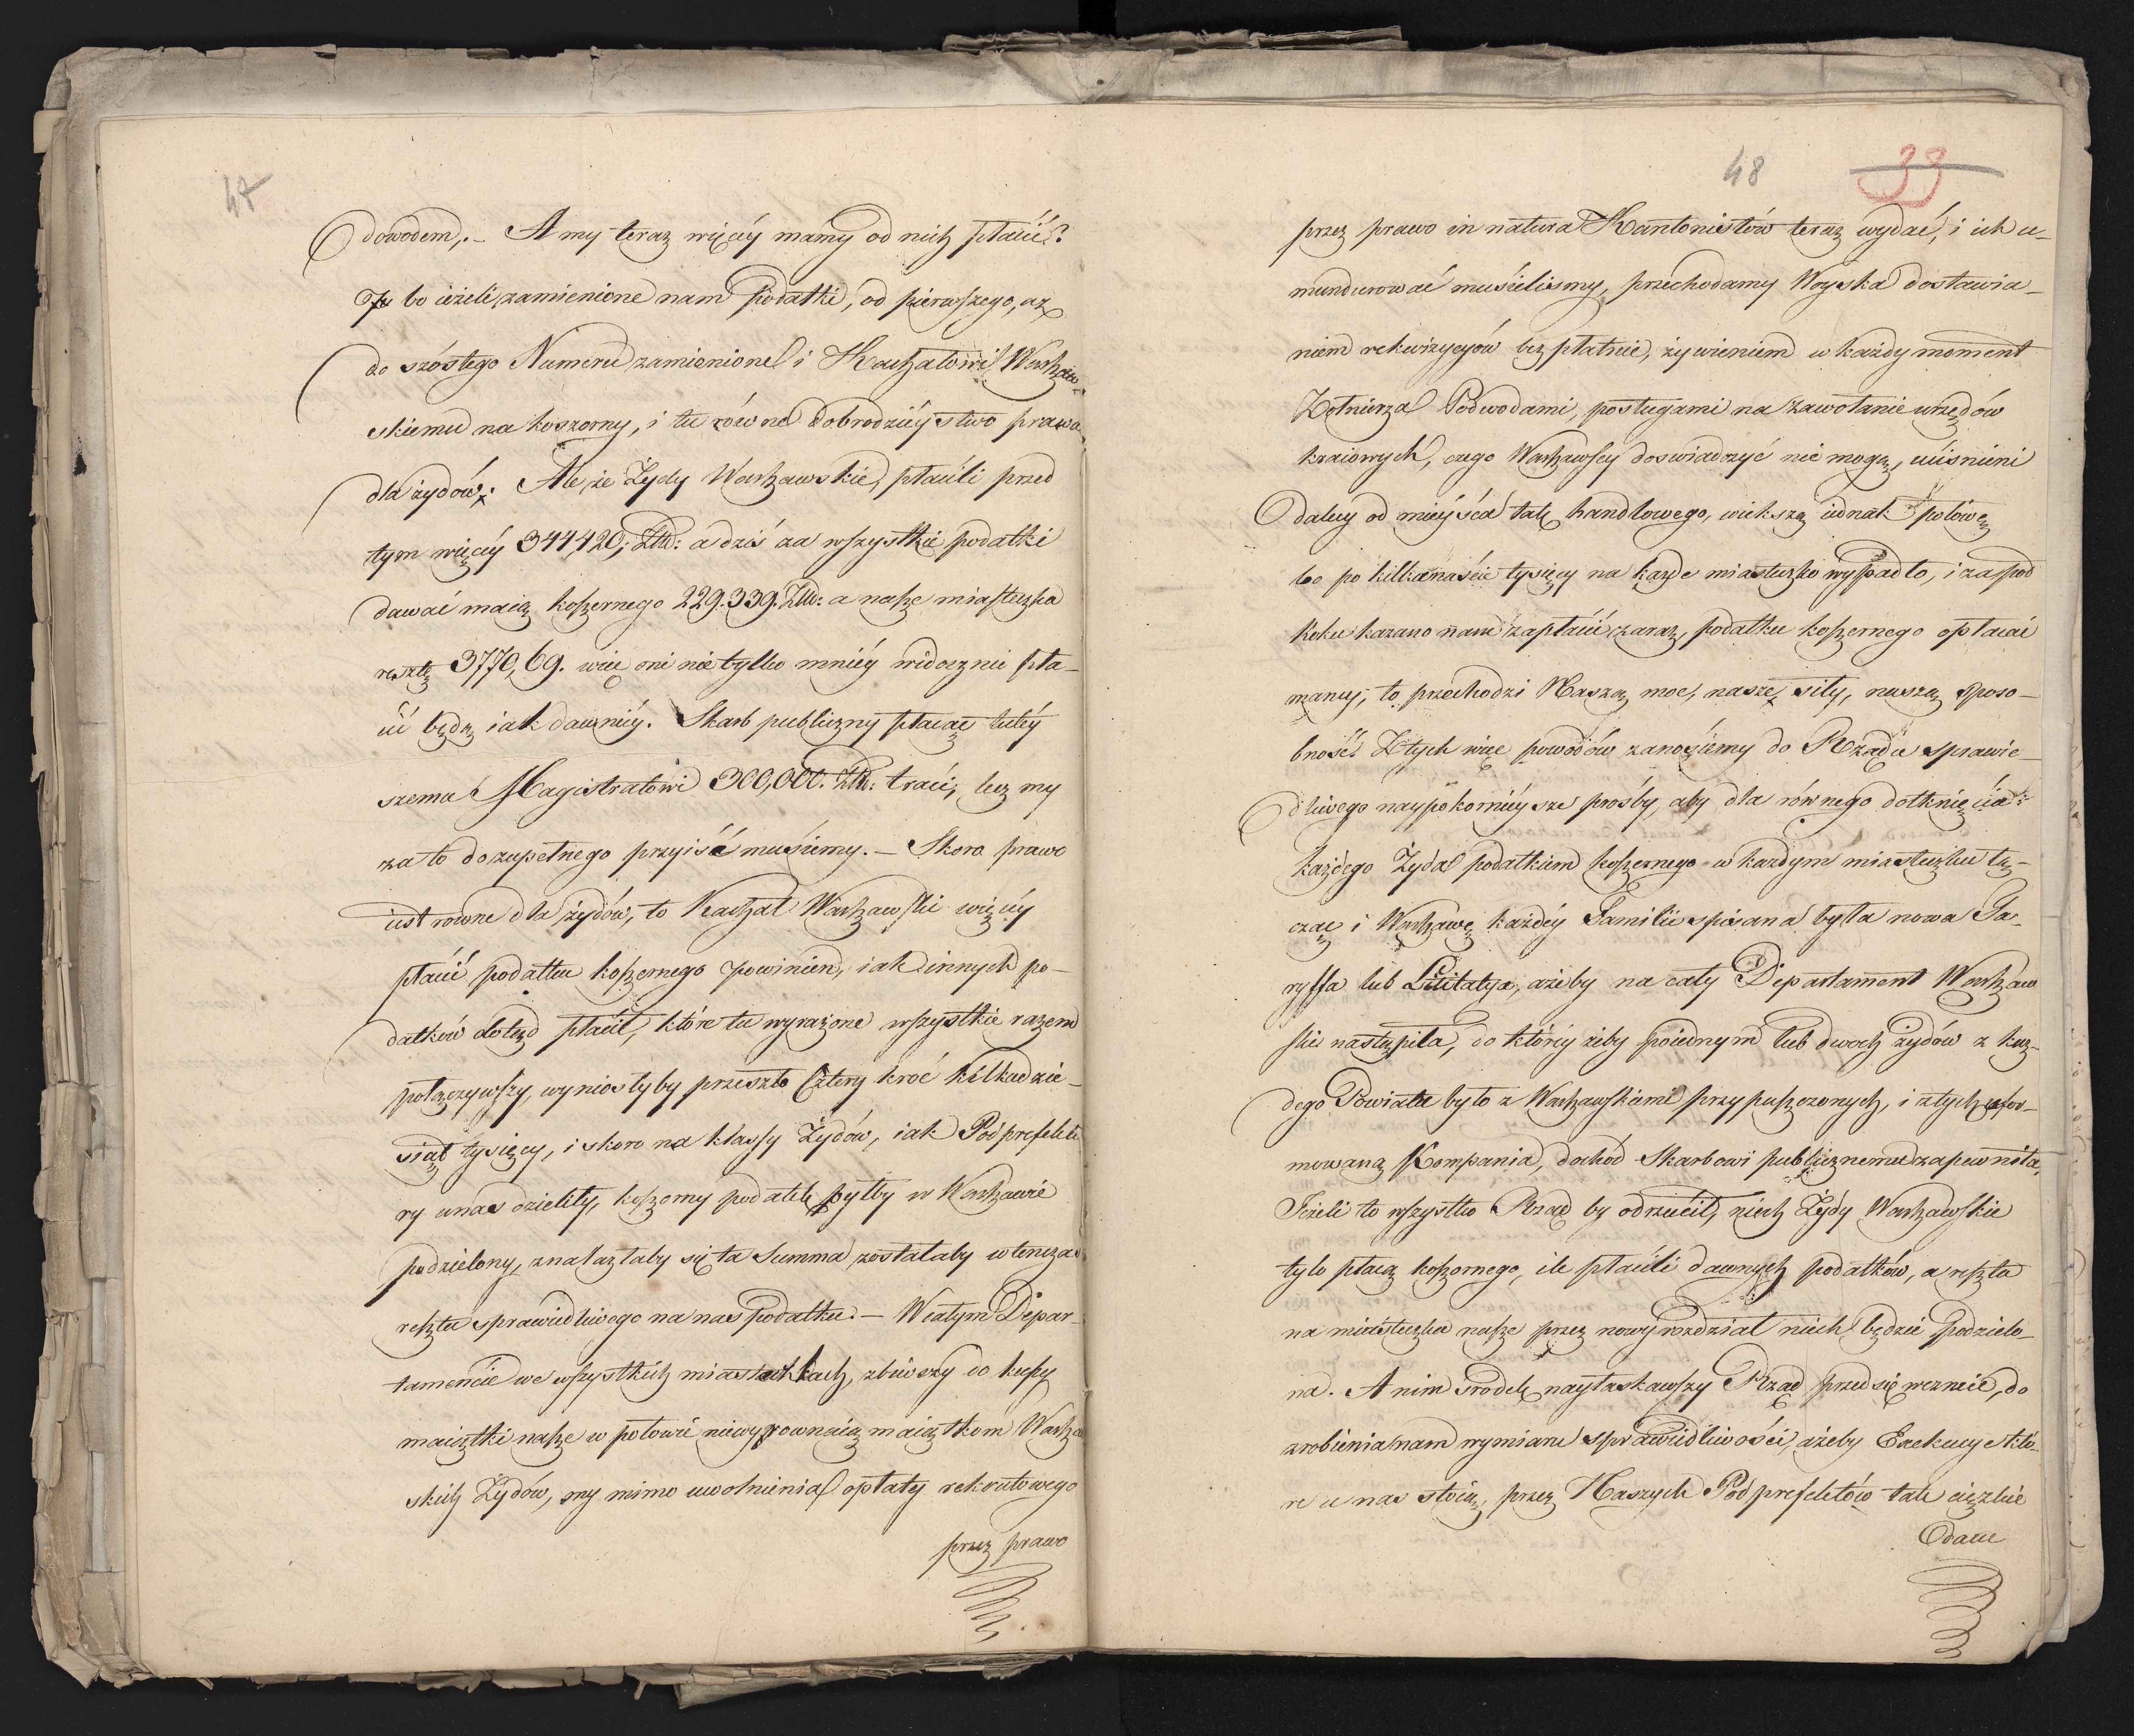 47
dowodem, .– A my teraz więcéy mamy od nich płacić?
Ju bo ieżeli zamienione nam Podatki, od pierwszego, aż
do szóstego Numeru zamienione i Kachałowi Warszaw-
skiemu na koszerny, i tu równe dobrodzieystwo prawa
dla żydów: Ale że Żydy Warszawskie, płacili przed
tym więcéy 344,420; Złł: a dziś za wszystkie podatki
dawać maią koszernego 229.339. Złł: a nasze miasteczka
resztę 3770,69. więc oni nie tylko mniéy widocznie pła-
cić będą iak dawniéy. Skarb publiczny płacąc tutéy
szemu Magistratowi 300,000. Złł: traci, lecz my
za to do zupełnego przyiść musiemy. – Skoro prawo
iest rowne dla żydów, to Kachał Warszawski więcéy
płacić podatku koszernego powinien, iak innych po-
datków dotąd płacił, które tu wyrażone wszystkie razem
połączywszy, wyniosłyby przeszło Cztery kroć kilkudzie-
siąt tysięcy, i skoro na klassy Żydów, iak Podprefekt
ry u nas dzielili, koszerny podatek byłby w Warszawie
podzielony, znalazłaby się ta Summa, zostałaby wtenczas
reszta sprawiedliwego na nas podatku. – W całym Depar-
tamencie we wszystkich miasteckach, zbiwszy do kupy
maiątki nasze w połowie niewyrownaią maiątkom Warsza
skich Żydów, my mimo uwolnienia opłaty rekrutowego
przez prawo
48 33
przez prawo in natura Kantonistów teraz wydać, i ich u-
mundurować musieliśmy, przechodamy Woyska dostawia-
niem rekwizycyów bezpłatnie, żywieniem w każdy moment
Żołnierza Podwodami, posługami na zawołanie urzędów
kraiowych, czego Warszawscy doswiadczyć nie mogą, uciśnieni
dalecy od mieyśca tak handlowego, wiekszą iednak połowę
bo po kilkanaście tysięcy na każde miasteczko wypadło, i za pod
Roku kazano nam zapłacić zaraz, podatku koszernego opłacać
mamy, to przechodzi Naszą moc, nasze siły, naszą sposo-
bność Z tych więc powodów zanosiemy do Rządu sprawie-
dliwego naypokornieysze prośby, aby dla równego dotknięcia
każdego Żyda podatkiem koszernego w każdym miasteczku łą-
cząc i Warszawę każdéy Familii spisana była nowa Ta-
ryffa lub Licitatya, ażeby na cały Departament Warszaw
ski nastąpiła, do któréy żeby poiednym lub dwoch żydów z każ-
dego Powiatu było z Warszawskiemi przypuszczonych, i z tych ufor-
mowaną Kompania, dochód Skarbowi publicznemu zapewniła,
Jeżeli to wszystko Rząd by odrzucił, niech Żydy Warszawskie
tylo płacą koszernego, ile płacili dawnych podatków, a reszta
na miasteczka nasze przez nowy rozdział niech będzie podzielo-
na. A nim środek nayłaskawszy Rząd przedsię weznie, do
zrobienia nam wymiaru sprawiedliwości, ażeby Exekucye któ-
re u nas stoią, przez Naszych Podprefektów tak ciężkie
Odane